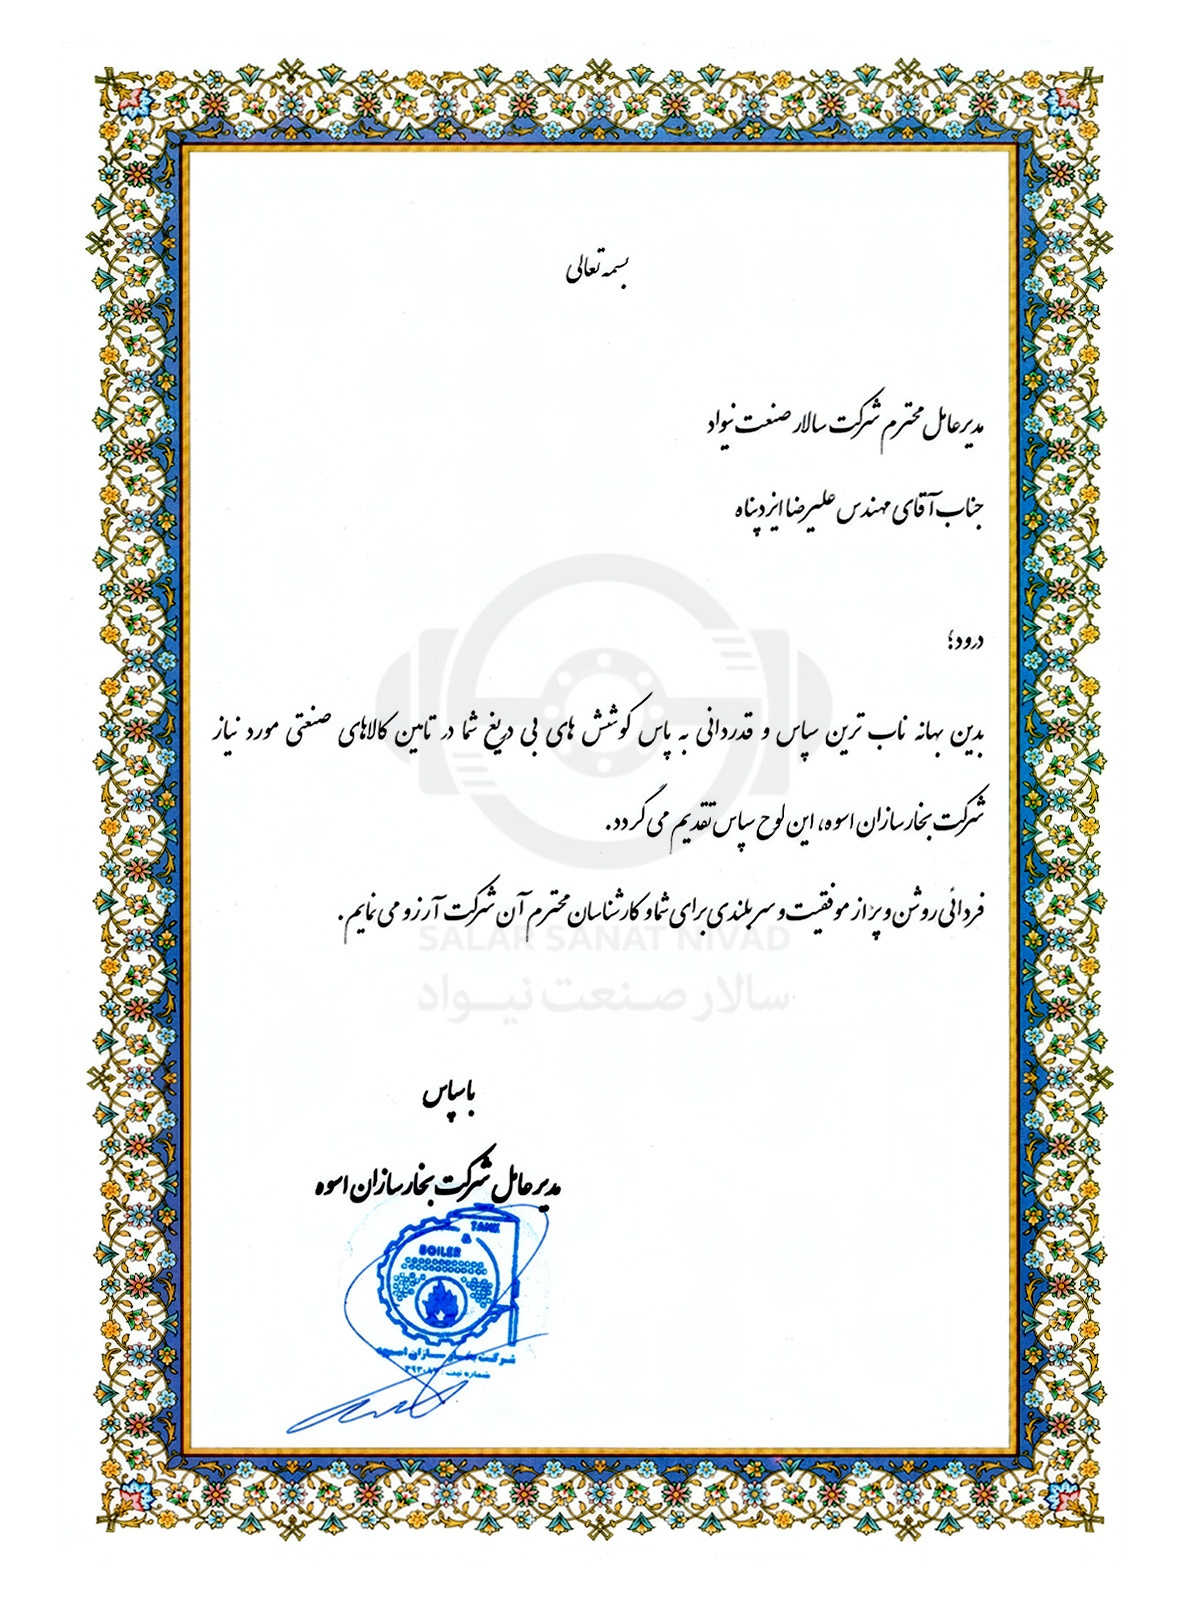 بسمه تعالی
مدیرعامل محترم شرکت سالار صنعت نیواد
جناب آقای مهندس علیرضا ایزدپناه
درود؛
بدین بهانه ناب ترین سپاس و قدردانی به پاس کوشش های بی دریغ شما در تامین کالاهای صنعتی مورد نیاز
شرکت بخارسازان اسوه، این لوح سپاس تقدیم می گردد.
فردائی روشن و پر از موفقیت و سربلندی برای شما و کارشناسان محترم آن شرکت آرزو می نمایم.
SALAR SANAT NIVAD
سالار صنعت نیواد
با سپاس
مدیرعامل شرکت بخارسازان اسوه
TANK
&
BOILER
شرکت بخار سازان اسوه
شماره ثبت